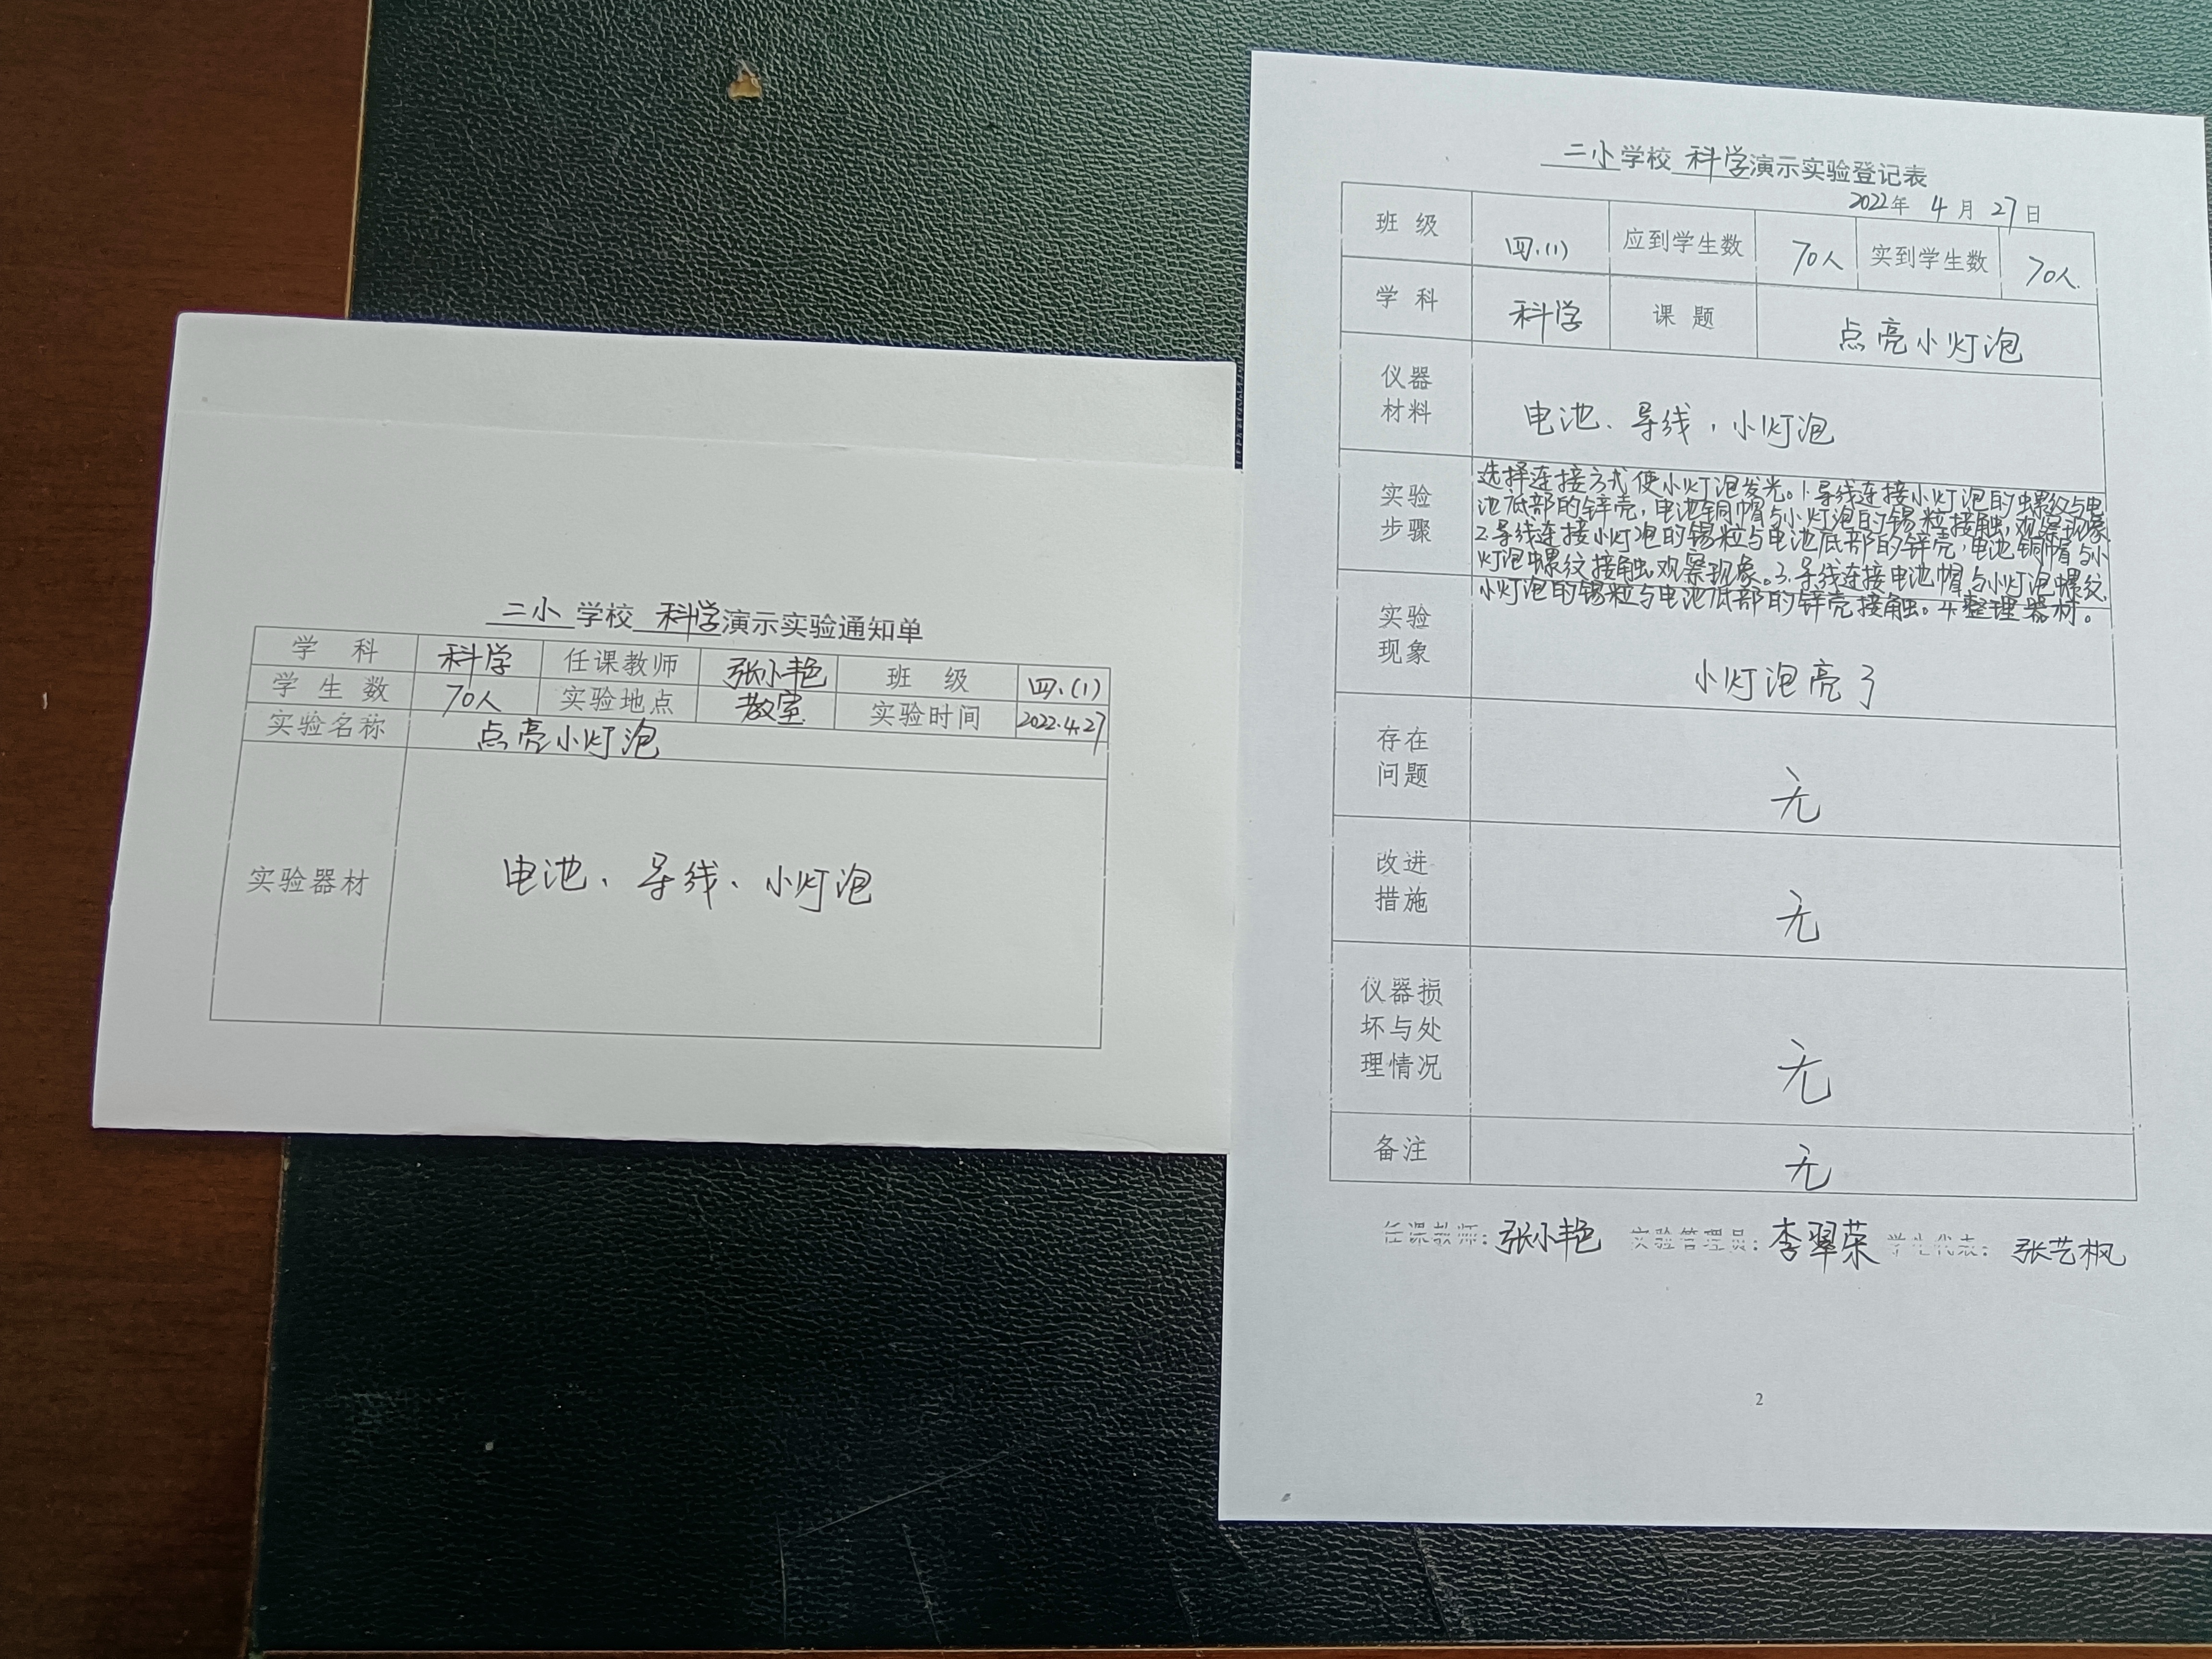 二小学校 科学演示实验通知单
学 科 科学 任课教师 张小艳 班 级 四.(1)
学 生 数 70人 实验地点 教室 实验时间 2022.4.27
实验名称 点亮小灯泡
实验器材 电池、导线、小灯泡
二小学校 科学演示实验登记表
2022年 4 月 27 日
班 级 四.(1) 应到学生数 70人 实到学生数 70人.
学 科 科学 课 题 点亮小灯泡
仪器
材料
电池、导线,小灯泡
实验
步骤
选择连接方式使小灯泡发光。1.导线连接小灯泡的螺纹与电
池底部的锌壳,电池铜帽与小灯泡的锡粒接触,观察现象
2.导线连接小灯泡的锡粒与电池底部的锌壳,电池铜帽与小
灯泡螺纹接触,观察现象。3.导线连接电池帽与小灯泡螺纹,
小灯泡的锡粒与电池底部的锌壳接触。4.整理器材。
实验
现象
小灯泡亮了
存在
问题
无
改进
措施
无
仪器损
坏与处
理情况
无
备注 无
任课教师:张小艳 实验管理员:李翠荣 学生代表:张艺枫
2